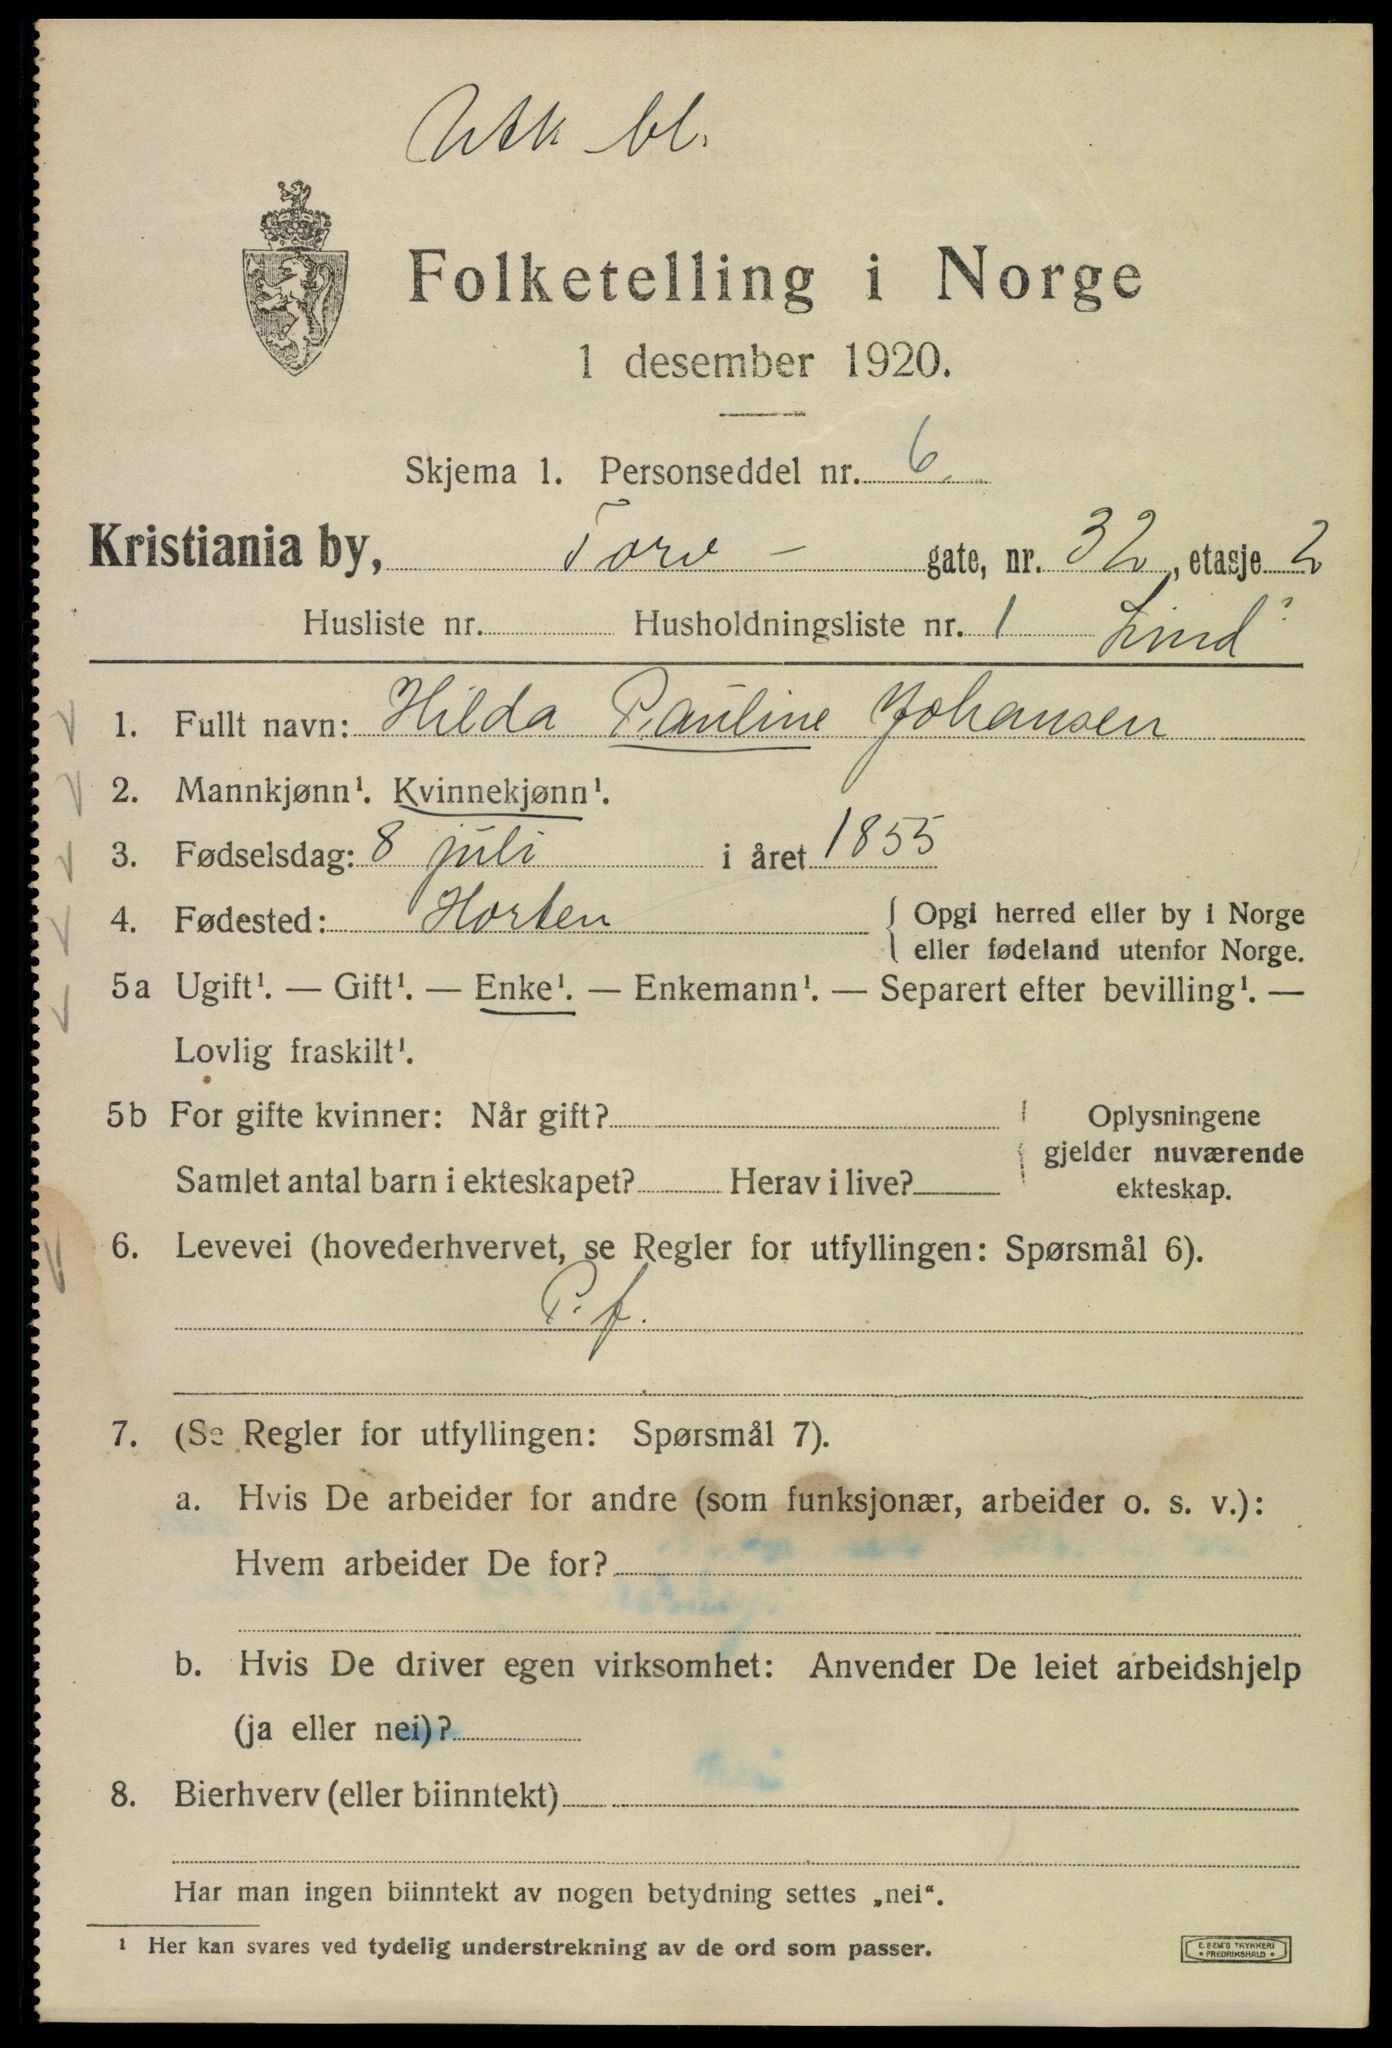 Folketelling i Norge
1 desember 1920.
Skjema 1. Personseddel nr. 6.
Kristiania by, Torv - gate, nr. 32, etasje 2
Husliste nr. Husholdningsliste nr. 1 Lind
1. Fullt navn: Hilda Pauline Johansen
2. Mannkjønn¹. Kvinnekjønn¹.
3. Fødselsdag: 8 juli i året 1855
4. Fødested: Horten { Opgi herred eller by i Norge
eller fødeland utenfor Norge.
5a Ugift¹. — Gift¹. — Enke¹. — Enkemann¹. — Separert efter bevilling¹. —
Lovlig fraskilt¹.
5b For gifte kvinner: Når gift? Oplysningene
gjelder nuværende
Samlet antal barn i ekteskapet? Herav i live? ekteskap.
6. Levevei (hovederhvervet, se Regler for utfyllingen: Spørsmål 6).
P. f.
7. (Se Regler for utfyllingen: Spørsmål 7).
a. Hvis De arbeider for andre (som funksjonær, arbeider o. s. v.):
Hvem arbeider De for?
b. Hvis De driver egen virksomhet: Anvender De leiet arbeidshjelp
(ja eller nei)?
8. Bierhverv (eller biinntekt)
Har man ingen biinntekt av nogen betydning settes „nei“.
¹ Her kan svares ved tydelig understrekning av de ord som passer.
E. SEM'S TRYKKERI
FREDRIKSHALD